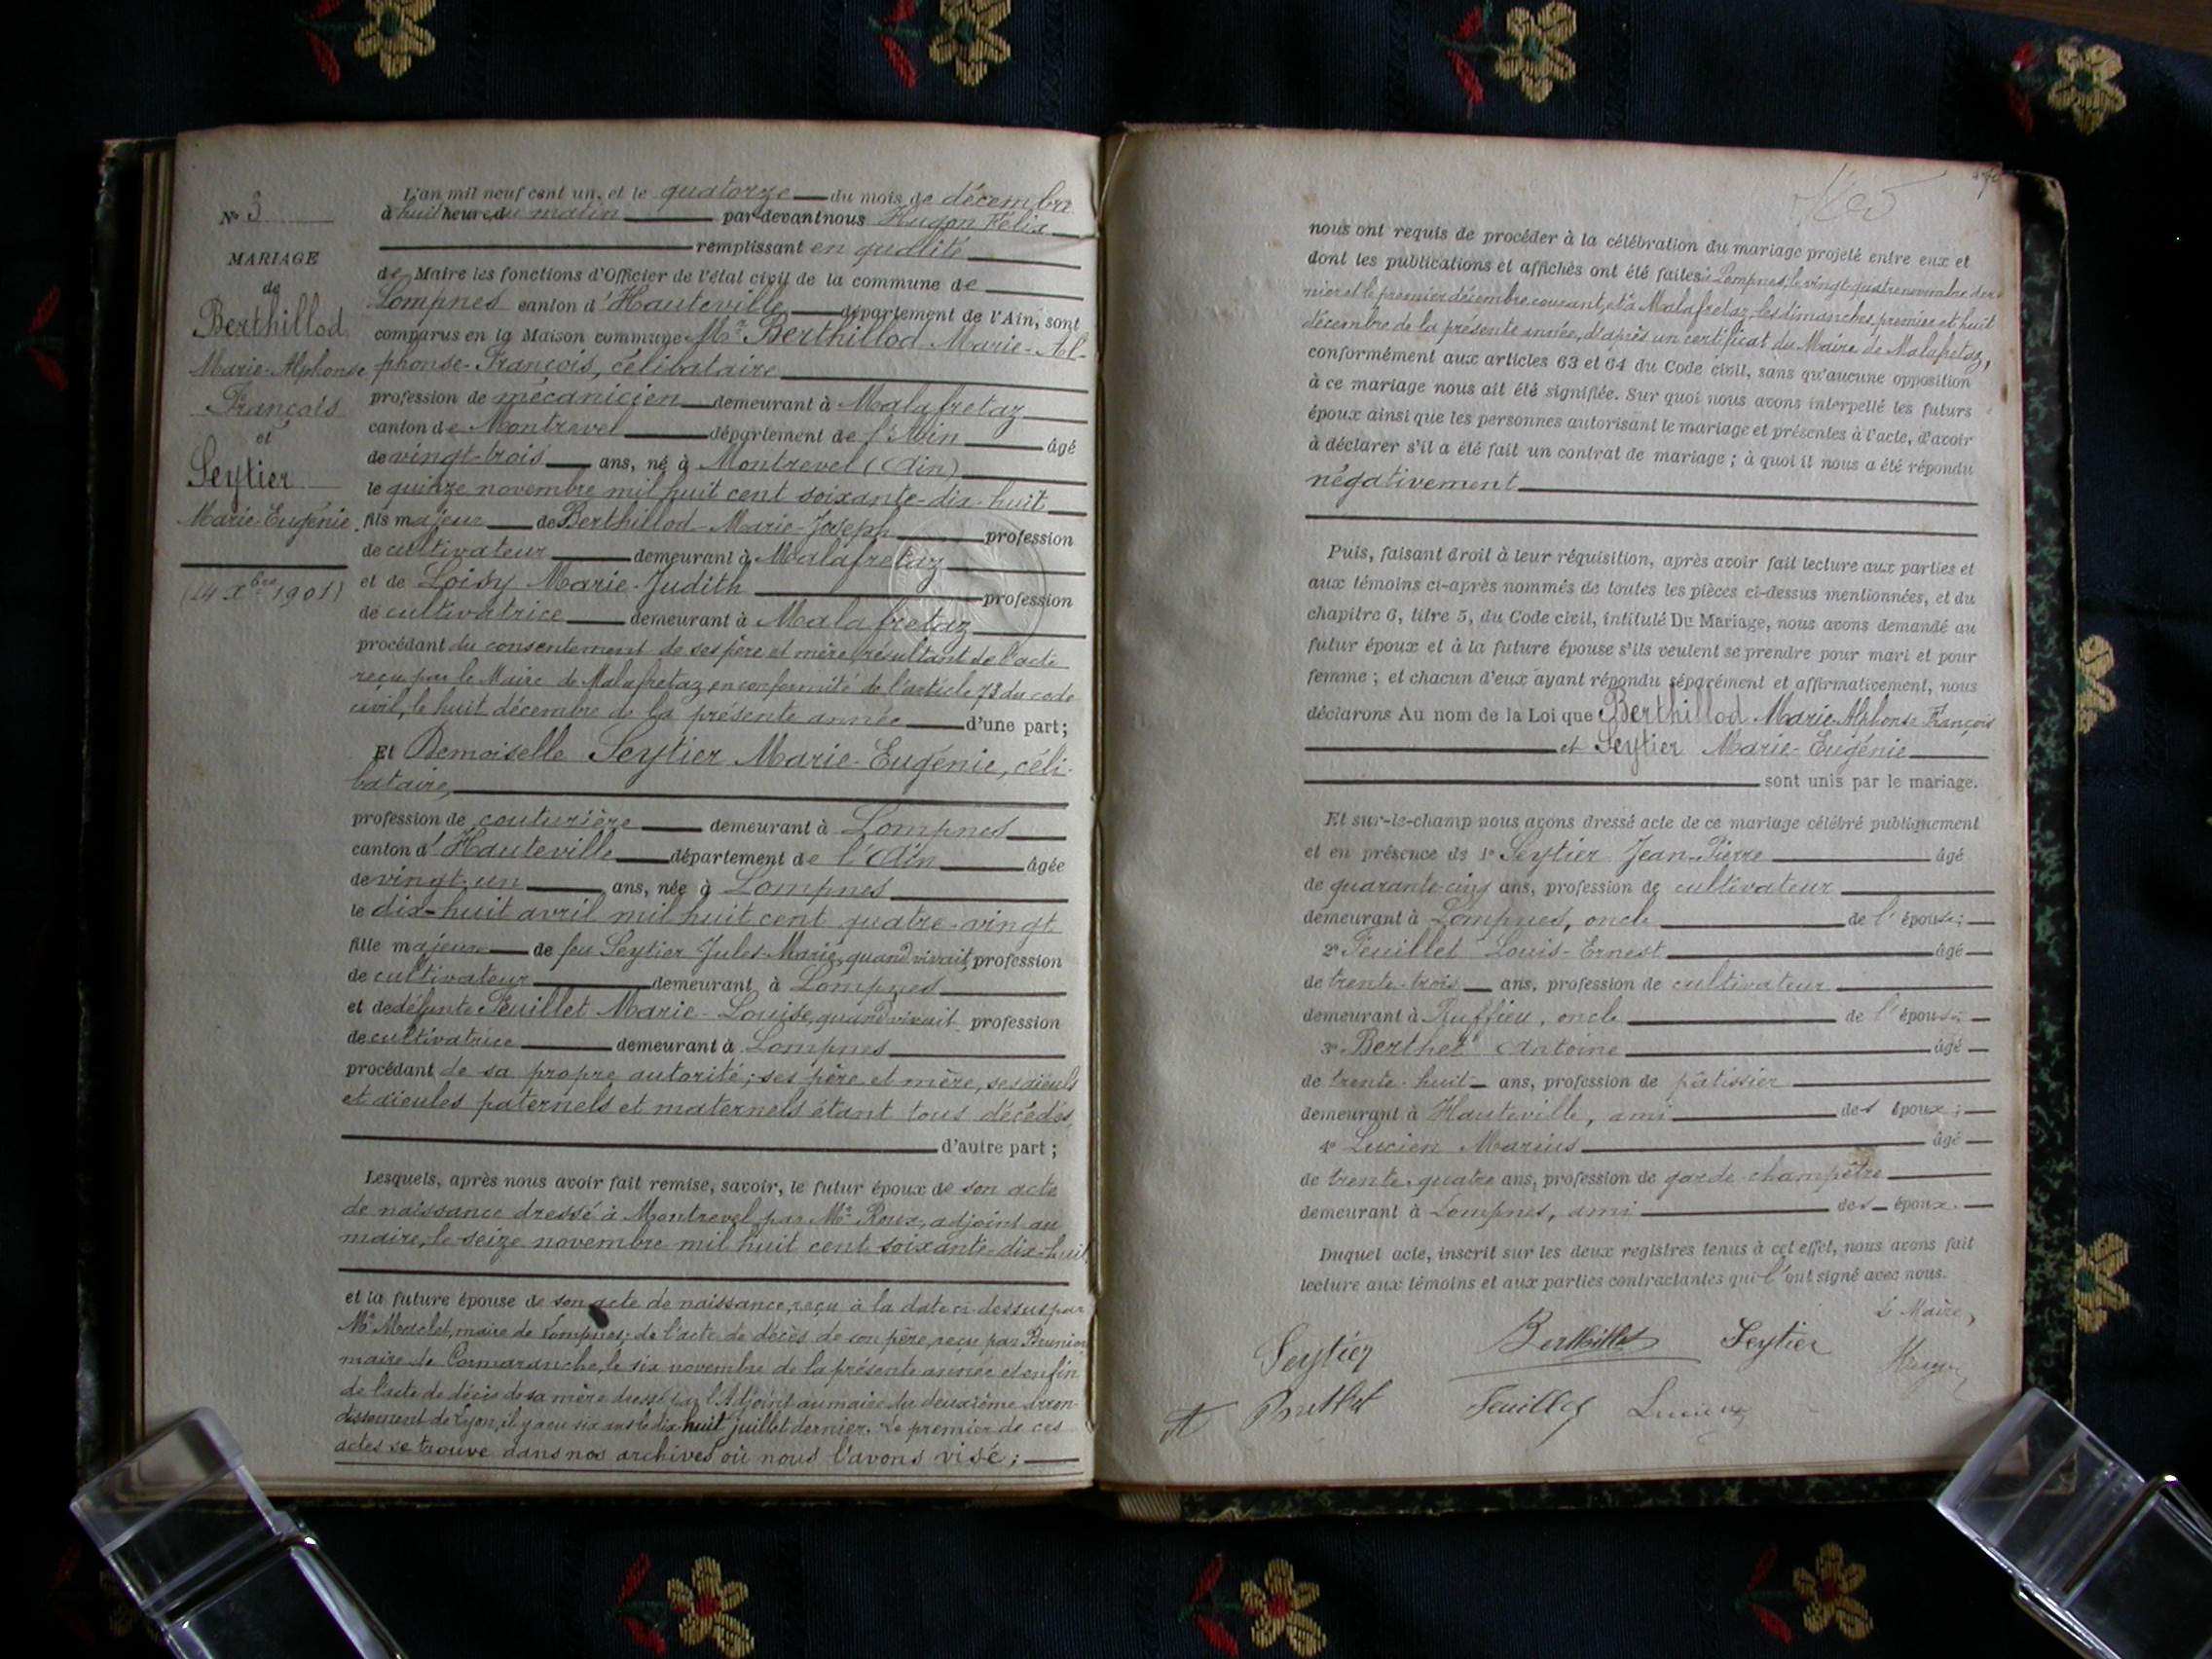 Nº 3
MARIAGE
de
Berthillod
Marie-Alphonse
François
et
Seytier
Marie-Eugénie.
(14 Xbre 1901)
L'an mil neuf cent un, et le quatorze du mois de décembre
à huit heures du matin par devant nous Hugon Félix
remplissant en qualité
de Maire les fonctions d'Officier de l'état civil de la commune de
Lompnes canton d'Hauteville département de l'Ain, sont
comparus en la Maison commune Mr Berthillod Marie-Al-
phonse-François, célibataire
profession de mécanicien demeurant à Malafretaz
canton de Montrevel département de l'Ain âgé
de vingt-trois ans, né à Montrevel (Ain)
le quinze novembre mil huit cent soixante-dix-huit
fils majeur de Berthillod Marie-Joseph profession
de cultivateur demeurant à Malafretaz
et de Loisy Marie-Judith profession
de cultivatrice demeurant à Malafretaz
procédant du consentement de ses père et mère, résultant de l'acte
reçu par le Maire de Malafretaz, en conformité de l'article 73 du code
civil, le huit décembre de la présente année d'une part;
Et Demoiselle Seytier Marie-Eugénie, céli-
bataire,
profession de couturière demeurant à Lompnes
canton d'Hauteville département de l'Ain âgée
de vingt-un ans, née à Lompnes
le dix-huit avril mil huit cent quatre-vingt
fille majeure de feu Seytier Jules-Marie, quand vivait, profession
de cultivateur demeurant à Lompnes
et de défunte Feuillet Marie-Louise, quand vivait profession
de cultivatrice demeurant à Lompnes
procédant de sa propre autorité; ses père et mère, ses aïeuls
et aïeules paternels et maternels étant tous décédés,
d'autre part;
Lesquels, après nous avoir fait remise, savoir, le futur époux de son acte
de naissance dressé à Montrevel par Mr Roux, adjoint au
maire, le seize novembre mil huit cent soixante-dix-huit
et la future épouse de son acte de naissance, reçu à la date ci-dessus par
Mr maire de Lompnes; de l'acte de décès de son père, reçu par
maire de Cormaranche, le six novembre de la présente année et enfin
de l'acte de décès de sa mère dressé par l'Adjoint au maire du deuxième arron-
dissement de Lyon, il y a eu six ans le dix huit juillet dernier. Le premier de ces
actes se trouve dans nos archives où nous l'avons visé;
nous ont requis de procéder à la célébration du mariage projeté entre eux et
dont les publications et affiches ont été faites à Lompnes, le vingt-quatre novembre der-
nier et le premier décembre courant, et à Malafretaz, les dimanches premier et huit
décembre de la présente année, d'après un certificat du Maire de Malafretaz,
conformément aux articles 63 et 64 du Code civil, sans qu'aucune opposition
à ce mariage nous ait été signifiée. Sur quoi nous avons interpellé les futurs
époux ainsi que les personnes autorisant le mariage et présentes à l'acte, d'avoir
à déclarer s'il a été fait un contrat de mariage; à quoi il nous a été répondu
négativement
Puis, faisant droit à leur réquisition, après avoir fait lecture aux parties et
aux témoins ci-après nommés de toutes les pièces ci-dessus mentionnées, et du
chapitre 6, titre 5, du Code civil, intitulé Du Mariage, nous avons demandé au
futur époux et à la future épouse s'ils veulent se prendre pour mari et pour
femme; et chacun d'eux ayant répondu séparément et affirmativement, nous
déclarons Au nom de la Loi que Berthillod Marie-Alphonse François
et Seytier Marie-Eugénie
sont unis par le mariage.
Et sur-le-champ nous avons dressé acte de ce mariage célébré publiquement
et en présence de 1º Seytier Jean-Pierre âgé
de quarante-cinq ans, profession de cultivateur
demeurant à Lompnes, oncle de l'épouse;
2º Feuillet Louis-Ernest âgé
de trente-trois ans, profession de cultivateur
demeurant à Ruffieu, oncle de l'épouse
3º Berthet Antoine âgé
de trente-huit ans, profession de pâtissier
demeurant à Hauteville, ami des époux;
4º Lucien Marius âgé
de trente-quatre ans, profession de garde champêtre
demeurant à Lompnes, ami des époux.
Duquel acte, inscrit sur les deux registres tenus à cet effet, nous avons fait
lecture aux témoins et aux parties contractantes qui l'ont signé avec nous.
Le Maire,
Seytier Berthillod Seytier Hugon
Berthet Feuillet Lucien